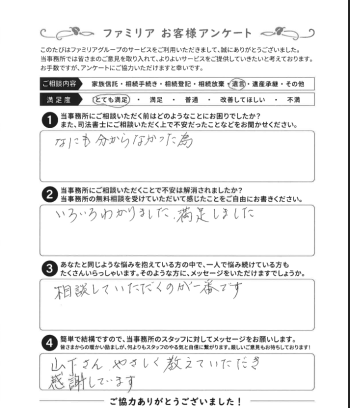 ファミリア お客様アンケート
このたびはファミリアグループのサービスをご利用いただきまして、誠にありがとうございました。
当事務所では皆さまのご意見を取り入れて、よりよいサービスをご提供していきたいと考えております。
お手数ですが、アンケートにご協力いただけますと幸いです。
ご相談内容 家族信託・相続手続き・相続登記・相続放棄・遺言・遺産承継・その他
満足度 とても満足 ・ 満足 ・ 普通 ・ 改善してほしい ・ 不満
1 当事務所にご相談いただく前はどのようなことにお困りでしたか？
また、司法書士にご相談いただく上で不安だったことなどをお聞かせください。
なにも分からなかった為
2 当事務所にご相談いただくことで不安は解消されましたか？
当事務所の無料相談を受けていただいて感じたことをご自由にお書きください。
いろいろわかりました、満足しました
3 あなたと同じような悩みを抱えている方の中で、一人で悩み続けている方も
たくさんいらっしゃいます。そのような方に、メッセージをいただけますでしょうか。
相談していただくのが一番です
4 簡単で結構ですので、当事務所のスタッフに対してメッセージをお願いします。
皆さまからの暖かい励ましが、何よりもスタッフのやる気と自信に繋がります。厳しいご意見もお待ちしております！
山下さん やさしく教えていただき
感謝しています
ご協力ありがとうございました！